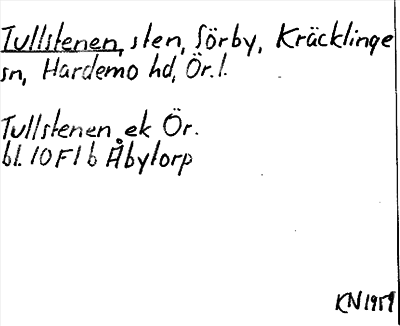 Tullstenen, sten, Sörby, Kräcklinge
sn, Hardemo hd, Ör. l.
Tullstenen ek Ör.
bl. 10 F 1 b Åbytorp
KN 1959